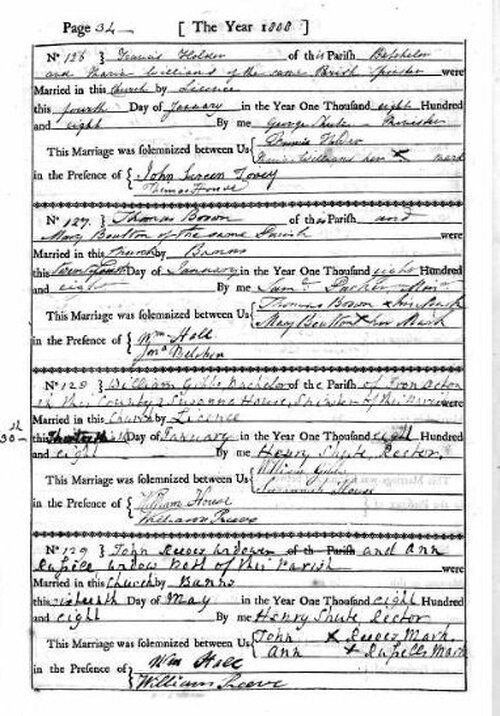 Page 34 [ The Year 1808 ]
No 126 } Francis Holder of this Parish Batchelor
and Maria Williams of the same Parish were
Married in this Church by Licence
this fourth Day of January in the Year One Thousand eight Hundred
and eight By me George Shute Minister
This Marriage was solemnized between Us { Francis Holder
Maria Williams her X mark
in the Presence of { John Green Tovey
Thomas House
No 127. } Thomas Bown of this Parish and
Mary Boulton of the same Parish were
Married in this Church by Banns
this Day of January in the Year One Thousand eight Hundred
and eight By me Saml Parker
This Marriage was solemnized between Us { Thomas Bown x his Mark
Mary Boulton x her Mark
in the Presence of { Wm Hall
No 128 } William Gibbs Bachelor of the Parish of Iron Acton
in this County & Susanna House, Spinster of this Parish were
Married in this Church by Licence
30th this Day of January in the Year One Thousand eight Hundred
and eight By me Henry Shute, Rector,
This Marriage was solemnized between Us { William Gibbs
Susannah House
in the Presence of { William House
William Reeve
No 129 } John Reeves widower of th Parish and Ann
widow both of this Parish were
Married in this Church by Banns
this sixteenth Day of May in the Year One Thousand eight Hundred
and eight By me Henry Shute Rector
This Marriage was solemnized between Us { John X Reeves Mark.
Ann + Mark
in the Presence of { Wm Hall
William Reeve